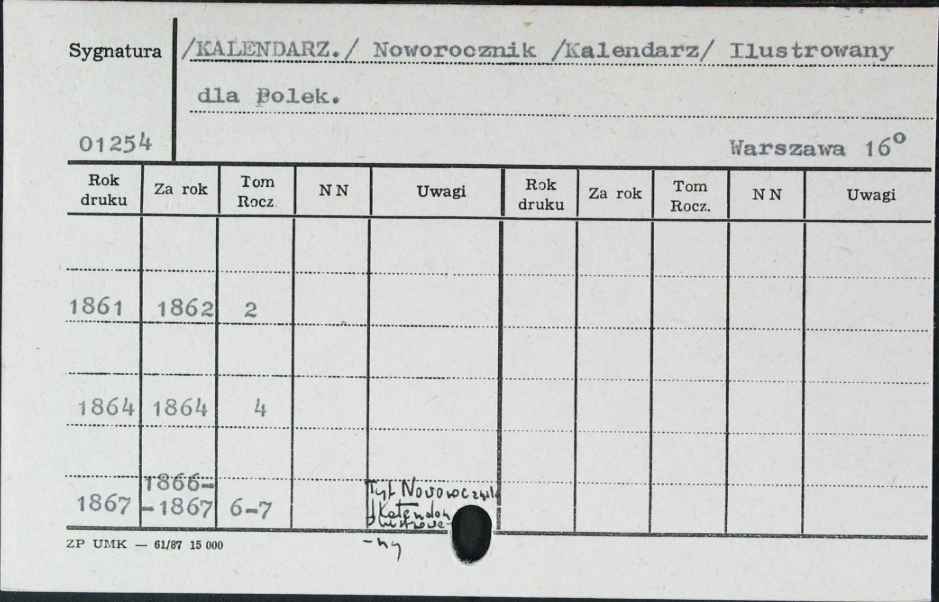 Sygnatura /KALENDARZ./ Noworocznik /Kalendarz/ Ilustrowany
dla Polek.
01254 Warszawa 16°
Rok druku Za rok Tom Rocz. NN Uwagi Rok druku Za rok Tom Rocz. NN Uwagi
1861 1862 2
1864 1864 4
1867 1866-
-1867 6-7 Tyt Noworocznik
Kalendarz
Ilustrowa-
-ny
ZP UMK — 61/87 15 000